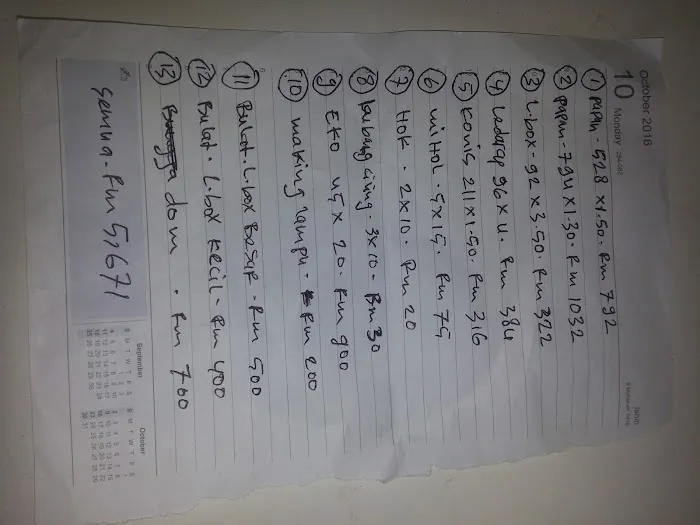 October 2016
10 Monday 284-082
① papan - 528 x 1.50 - Rm 792
② papan - 794 x 1.30 - Rm 1032
③ L.box - 92 x 3.50 - Rm 322
④ Ledarap 96 x 4 - Rm 384
⑤ Konis 211 x 1.50 - Rm 316
⑥ miHOL - 5 x 15 - Rm 75
⑦ HOK - 2 x 10 - Rm 20
⑧ lubang cising - 3x10 - Rm 30
⑨ EKO 45 x 20 - Rm 900
⑩ making lampu - Rm 200
⑪ Bulat - L.box BESAR - Rm 500
⑫ Bulat - L.box KECIL - Rm 400
⑬ dom - Rm 700
Semua - Rm 5,671
September
October